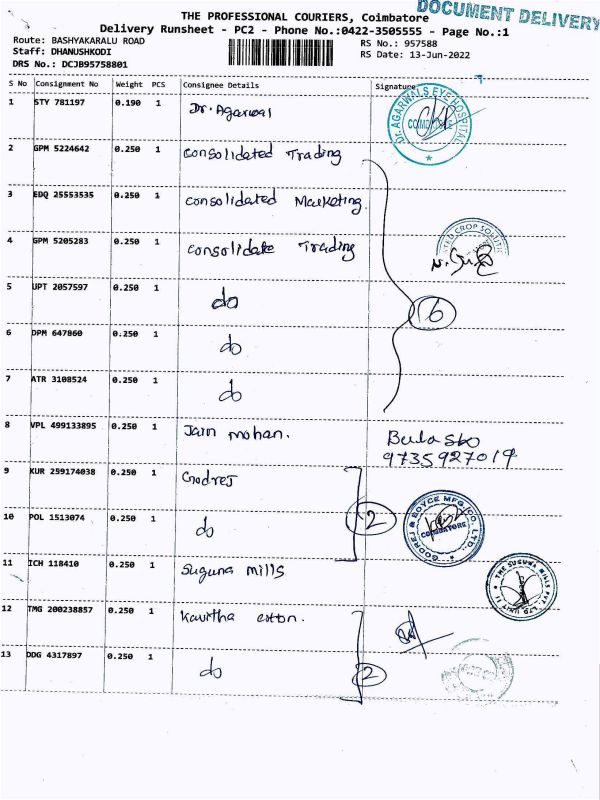 DOCUMENT DELIVERY
THE PROFESSIONAL COURIERS, Coimbatore
Delivery Runsheet - PC2 - Phone No.:0422-3505555 - Page No.:1
Route: BASHYAKARALU ROAD
RS No.: 957588
Staff: DHANUSHKODI
RS Date: 13-Jun-2022
DRS No.: DCJB95758801
S No Consignment No Weight PCS Consignee Details Signature
1 STY 781197 0.190 1 Dr. Agarwal
DR. AGARWALS EYE HOSPITAL
COIMBATORE
2 GPM 5224642 0.250 1 Consolidated Trading
3 EDQ 25553535 0.250 1 Consolidated Marketing.
4 GPM 5205283 0.250 1 Consolidate Trading
CROP
5 UPT 2057597 0.250 1 do
6
6 DPM 647860 0.250 1 do
7 ATR 3108524 0.250 1 do
8 VPL 499133895 0.250 1 Jain mohan.
9735927019
9 KUR 259174038 0.250 1 Godrej
2
10 POL 1513074 0.250 1 do
GODREJ & BOYCE MFG. CO. LTD.
COIMBATORE
11 ICH 118410 0.250 1 Suguna mills
THE SUGUNA MILLS PVT. LTD UNIT II
12 TMG 200238857 0.250 1 Kavitha cotton.
13 DDG 4317897 0.250 1 do
2